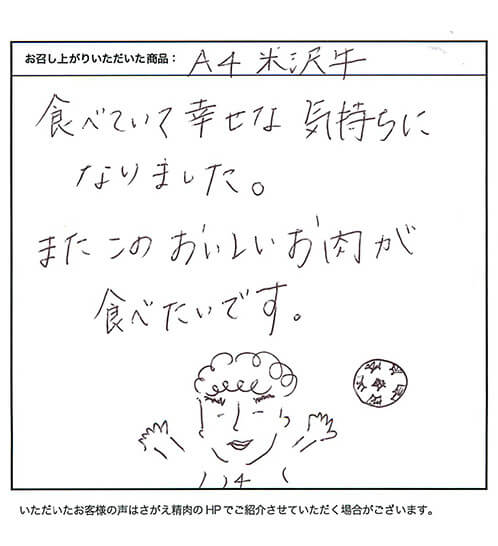 お召し上がりいただいた商品： A4 米沢牛
食べていて幸せな 気持ちに
なりました。
また このおいしいお肉が
食べたいです。
14
いただいたお客様の声はさがえ精肉のHPでご紹介させていただく場合がございます。